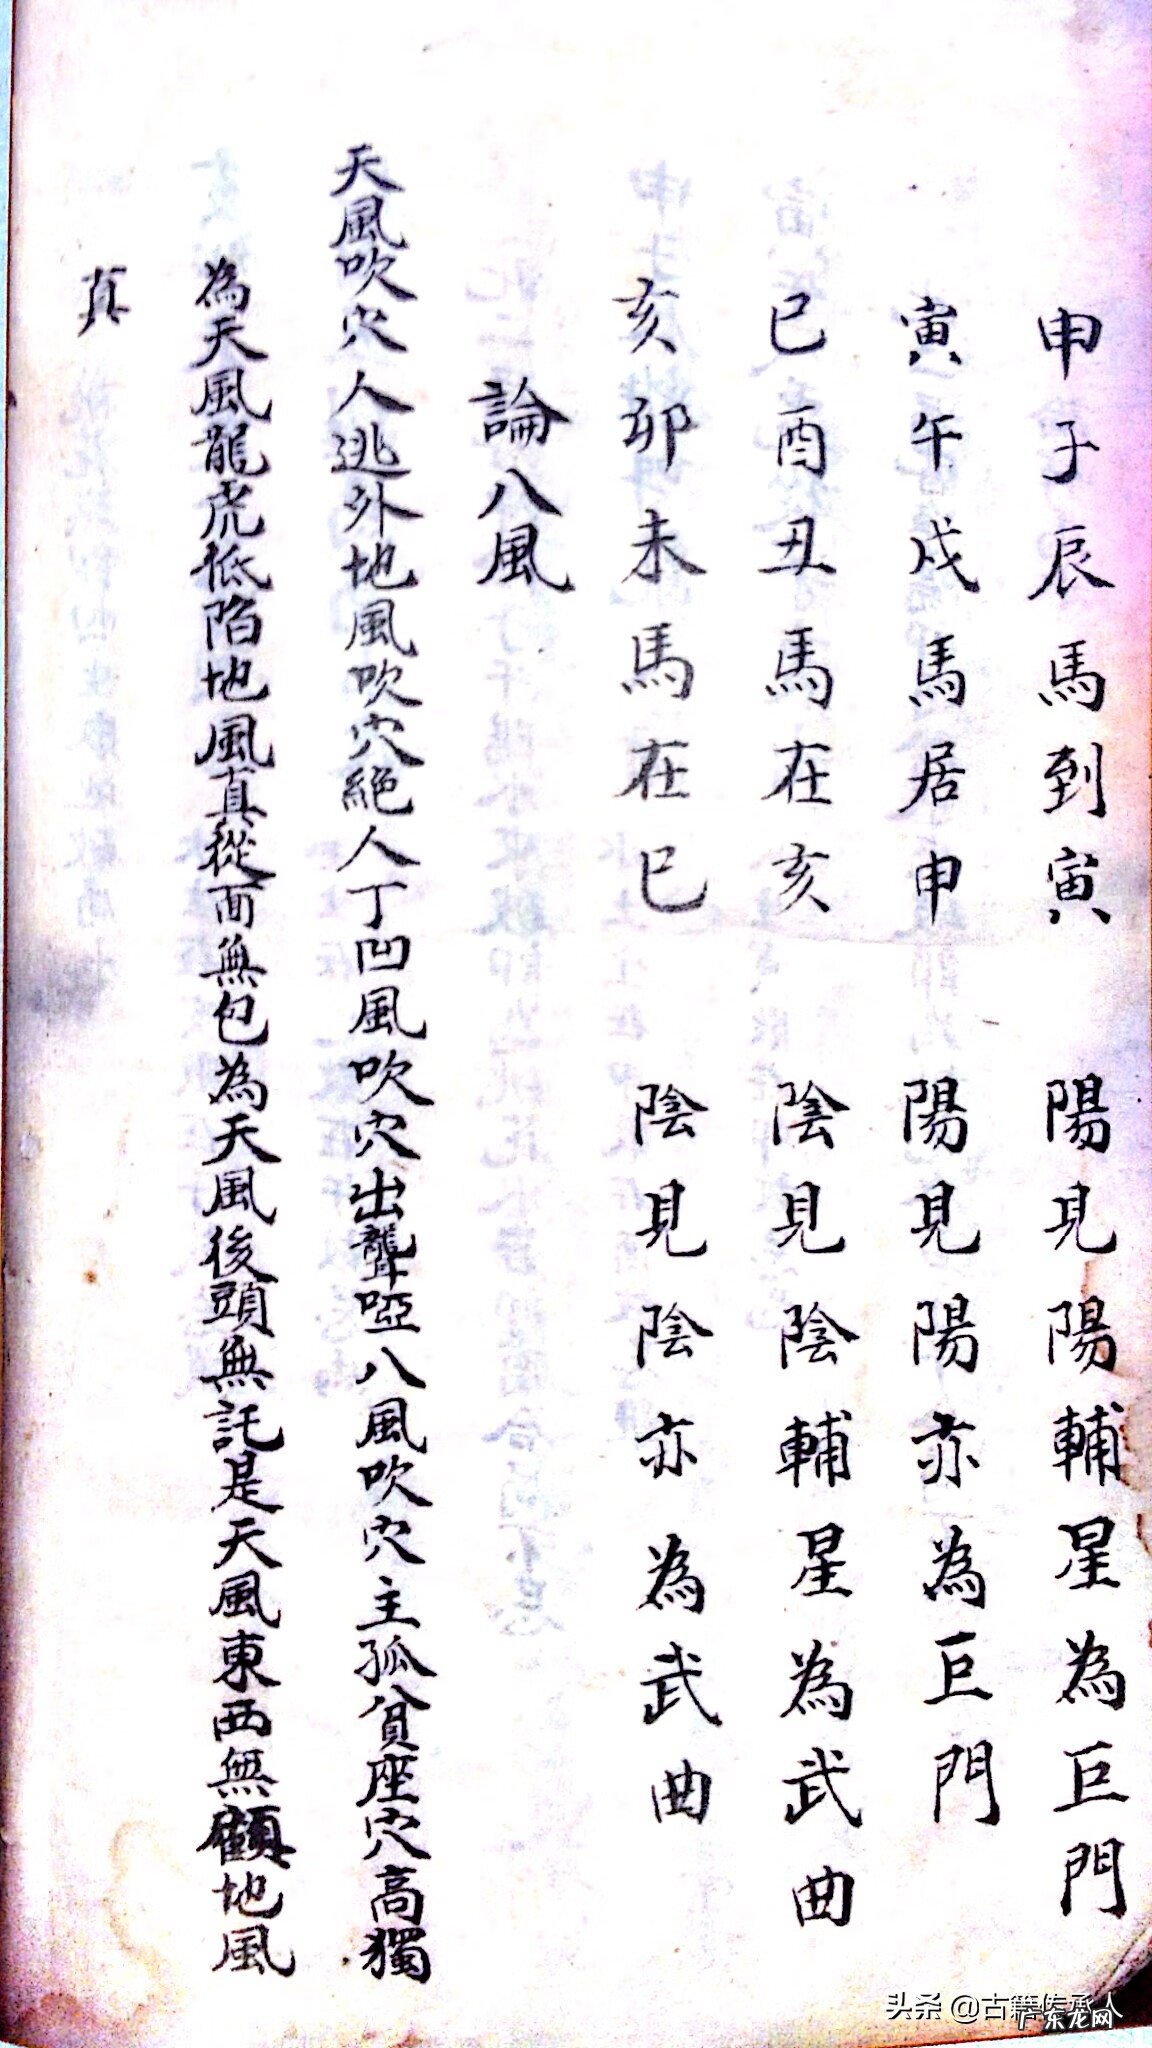 申子辰馬到寅　陽見陽輔星為巨門
寅午戍馬居申　陽見陽亦為巨門
巳酉丑馬在亥　陰見陰輔星為武曲
亥卯未馬在巳　陰見陰亦為武曲
論八風
天風吹穴人逃外地風吹穴絕人丁凹風吹穴出聾啞八風吹穴主孤貧座穴高獨
為天風龍虎低陷地風真從面無包為天風後頭無託是天風東西無顧地風
真
头条 @古籍传承人
广东龙网